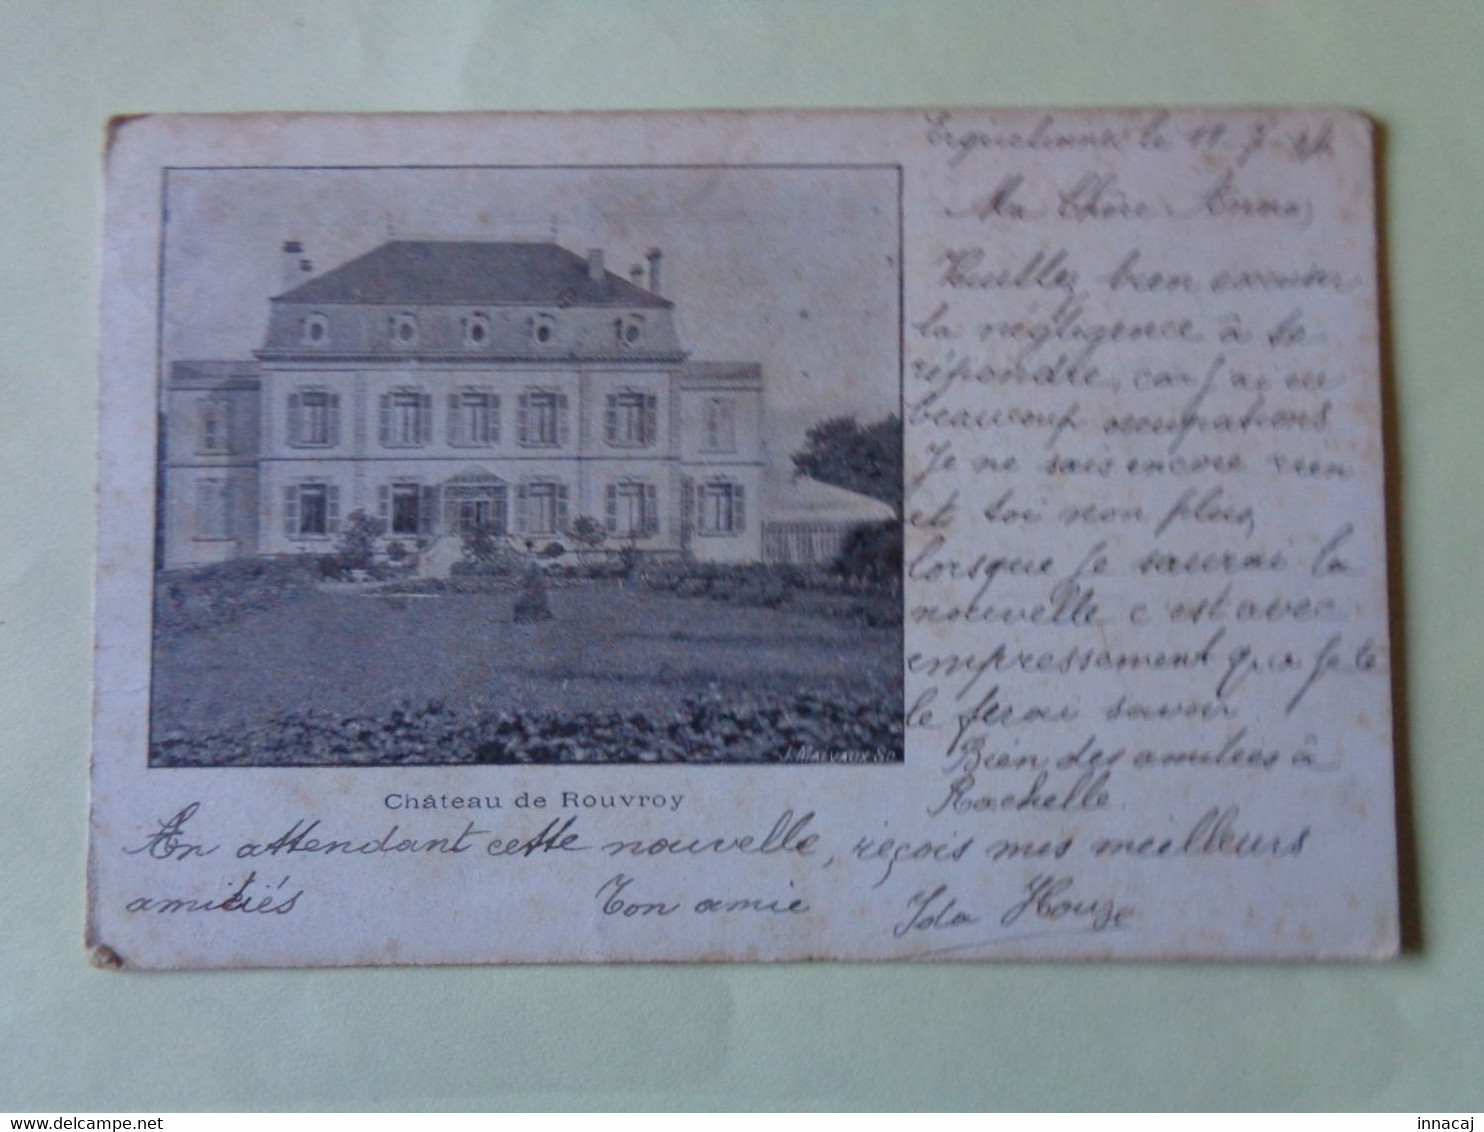 Erquelinnes le 19-7-04
Ma Chère Anna,
Veuillez bien excuser
la négligence à te
répondre, car j'ai eu
beaucoup occupations
Je ne sais encore rien
et toi non plus,
lorsque je saurai la
nouvelle c'est avec
empressement que je te
le ferai savoir
Bien des amitiées à
Rachelle.
J. Malvaux Sc.
Château de Rouvroy
En attendant cette nouvelle, reçois mes meilleurs
amitiés Ton amie Ida Houze
delcampe.net
innacaj